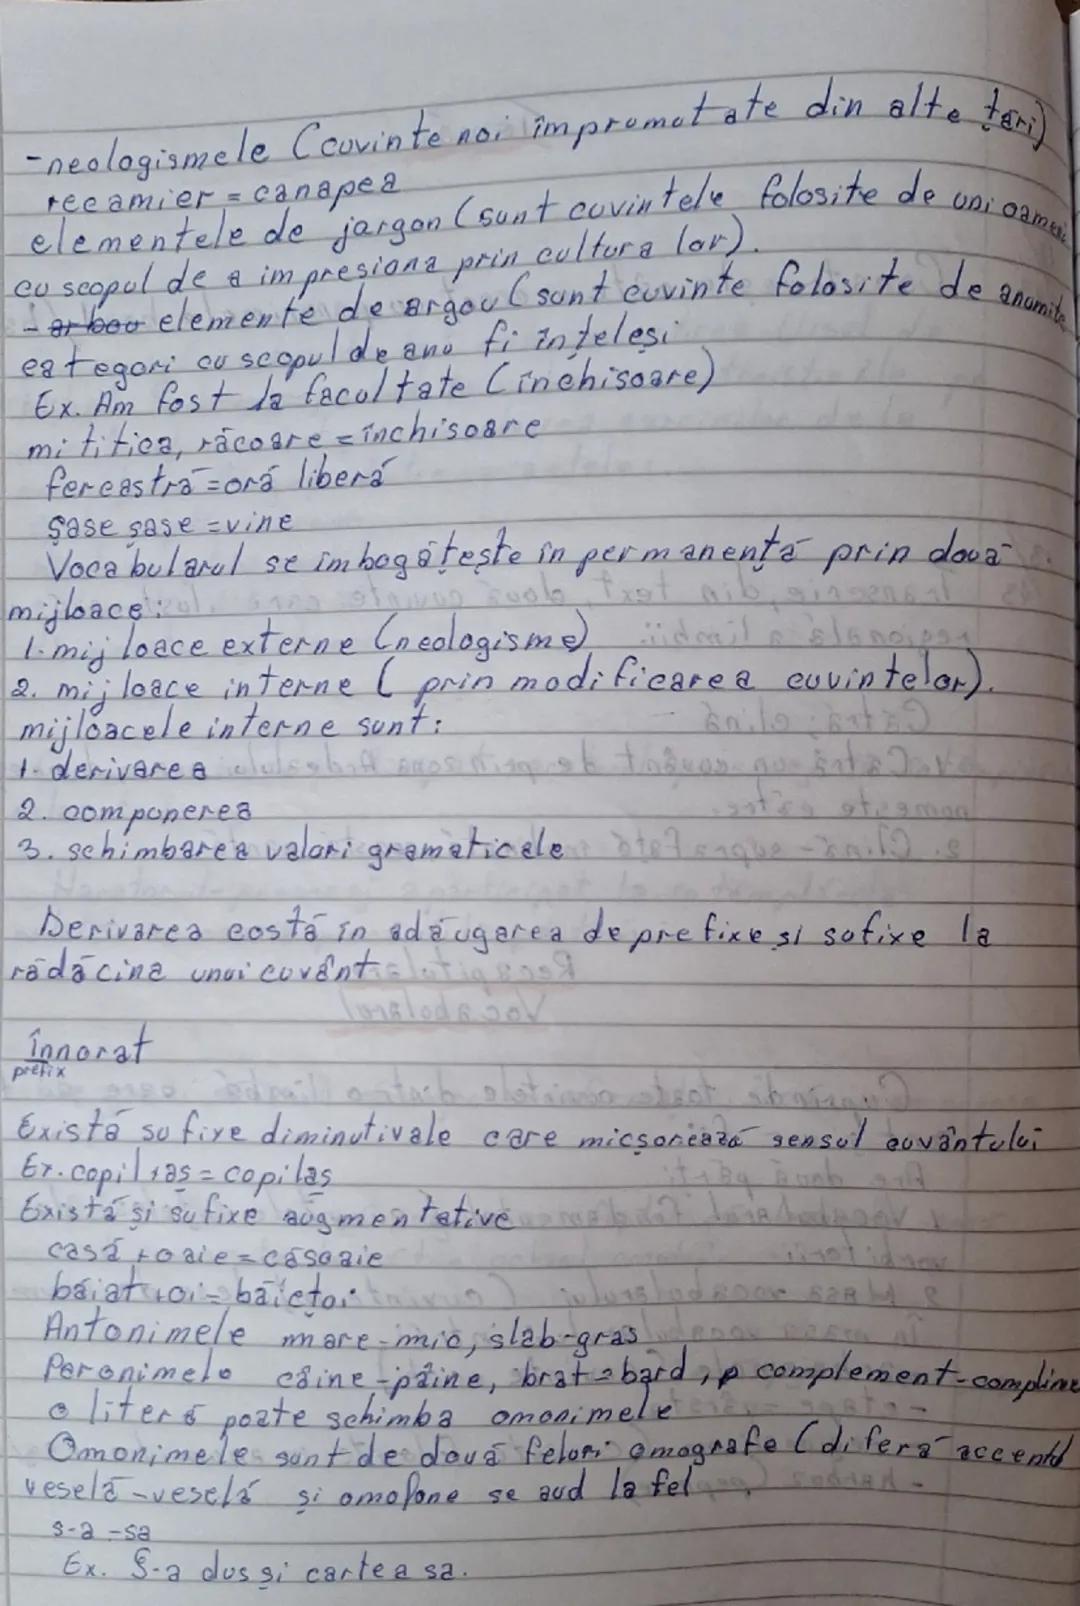 -neologismele (cuvinte noi împrumutate din alte țări)
recamier = canapea
elementele de jargon (sunt cuvintele folosite de uni oameni
cu scopul de a impresiona prin cultura lor).
- elemente de argou (sunt cuvinte folosite de anumite
categori cu scopul de anu fi înțeleși
Ex. Am fost la facultate (închisoare)
mititica, răcoare = închisoare
fereastră = oră liberă
șase șase = vine
Vocabularul se îmbogățește în permanență prin două
mijloace:
1. mijloace externe (neologisme)
2. mijloace interne ( prin modificarea cuvintelor).
mijloacele interne sunt:
1. derivarea
2. compunerea
3. schimbarea valori gramaticale
Derivarea costă în adăugarea de prefixe și sufixe la
rădăcina unui cuvânt
înnorat
prefix
Există sufixe diminutivale care micșorează sensul cuvântului
Ex. copil+aș = copilaș
Există și sufixe augmentative
casă +oaie = căsoaie
băiat +oi = băiețoi
Antonimele mare-mic, slab-gras
Paronimele câine-pâine, brat = bard, complement-complime
o literă poate schimba omonimele
Omonimele sunt de două feluri omografe (diferă accentul
veselă-veselă și omofone se aud la fel
s-a -sa
Ex. S-a dus și cartea sa.